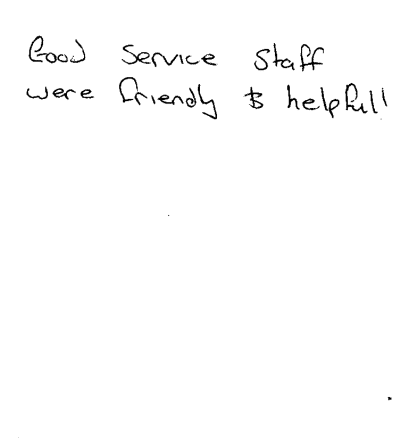 Good Service Staff
were friendly & helpfull